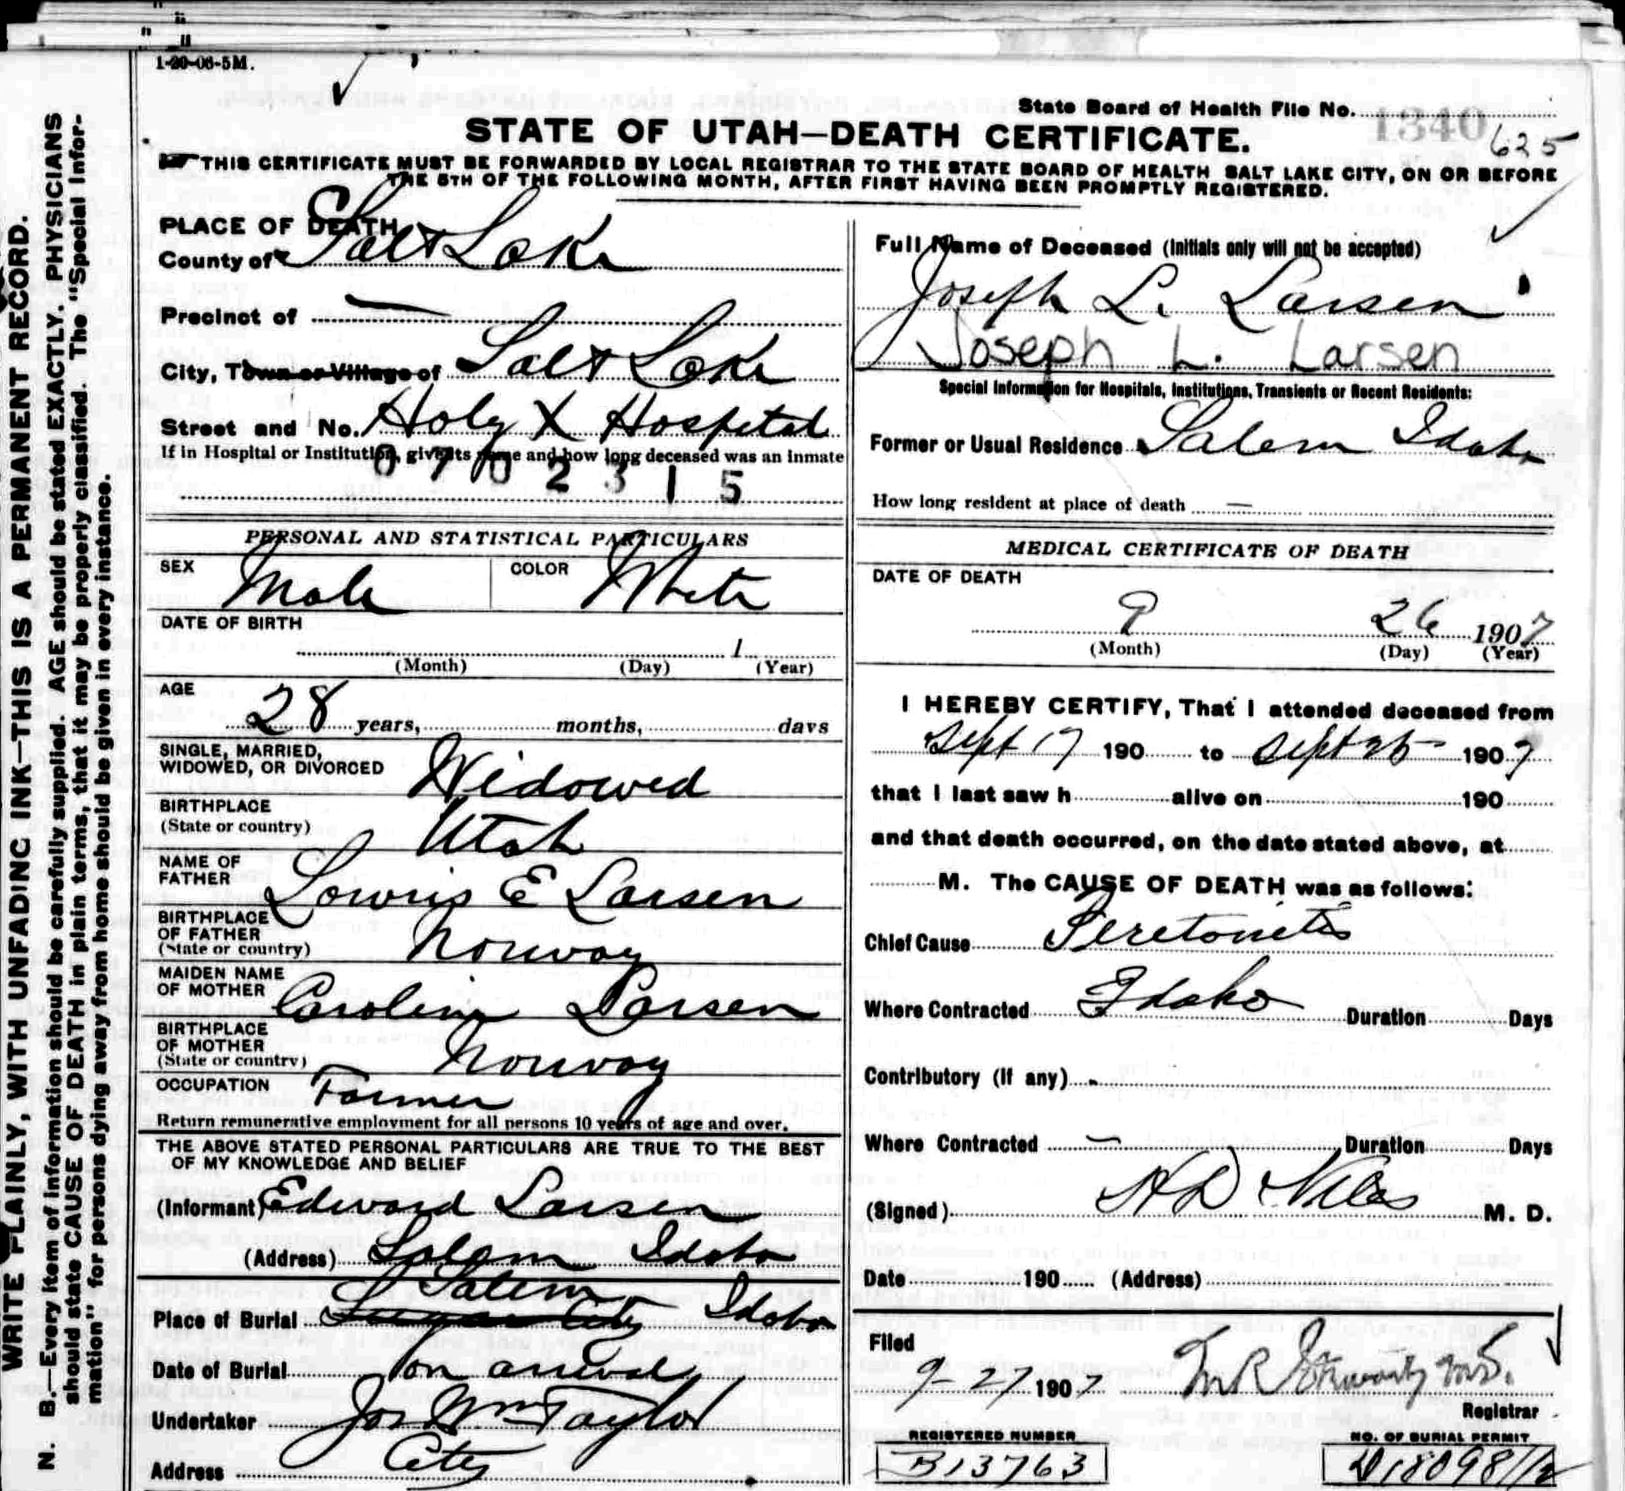 1-20-06-5M.
State Board of Health File No. 1340
625
STATE OF UTAH—DEATH CERTIFICATE.
THIS CERTIFICATE MUST BE FORWARDED BY LOCAL REGISTRAR TO THE STATE BOARD OF HEALTH SALT LAKE CITY, ON OR BEFORE
THE 5TH OF THE FOLLOWING MONTH, AFTER FIRST HAVING BEEN PROMPTLY REGISTERED.
WRITE PLAINLY, WITH UNFADING INK—THIS IS A PERMANENT RECORD.
N. B.—Every item of information should be carefully supplied. AGE should be stated EXACTLY. PHYSICIANS
should state CAUSE OF DEATH in plain terms, that it may be properly classified. The "Special Infor-
mation" for persons dying away from home should be given in every instance.
PLACE OF DEATH
County of Salt Lake
Precinct of —
City, Town or Village of Salt Lake
Street and No. Holy X Hospital
If in Hospital or Institution, give its name and how long deceased was an inmate
0702315
PERSONAL AND STATISTICAL PARTICULARS
SEX Male COLOR White
DATE OF BIRTH
1
(Month) (Day) (Year)
AGE
28 years, months, days
SINGLE, MARRIED,
WIDOWED, OR DIVORCED Widowed
BIRTHPLACE
(State or country) Utah
NAME OF
FATHER Lowris E Larsen
BIRTHPLACE
OF FATHER
(State or country) Norway
MAIDEN NAME
OF MOTHER Caroline Larsen
BIRTHPLACE
OF MOTHER
(State or country) Norway
OCCUPATION Farmer
Return remunerative employment for all persons 10 years of age and over.
THE ABOVE STATED PERSONAL PARTICULARS ARE TRUE TO THE BEST
OF MY KNOWLEDGE AND BELIEF
(Informant) Edward Larsen
(Address) Salem Idaho
Salem
Place of Burial Sugar City Idaho
Date of Burial on arrival
Undertaker Jos Wm Taylor
Address City
Full Name of Deceased (Initials only will not be accepted)
Joseph L. Larsen
Joseph L. Larsen
Special Information for Hospitals, Institutions, Transients or Recent Residents:
Former or Usual Residence Salem Idaho
How long resident at place of death —
MEDICAL CERTIFICATE OF DEATH
DATE OF DEATH
9 26 1907
(Month) (Day) (Year)
I HEREBY CERTIFY, That I attended deceased from
Sept 17 190 to Sept 25 1907
that I last saw h alive on 190
and that death occurred, on the date stated above, at
M. The CAUSE OF DEATH was as follows:
Chief Cause Peretonitis
Where Contracted Idaho Duration Days
Contributory (If any)
Where Contracted — Duration Days
(Signed) H D Niles M. D.
Date 190 (Address)
Filed
9-27 1907
Registrar
REGISTERED NUMBER NO. OF BURIAL PERMIT
B13763 D18098 1/2